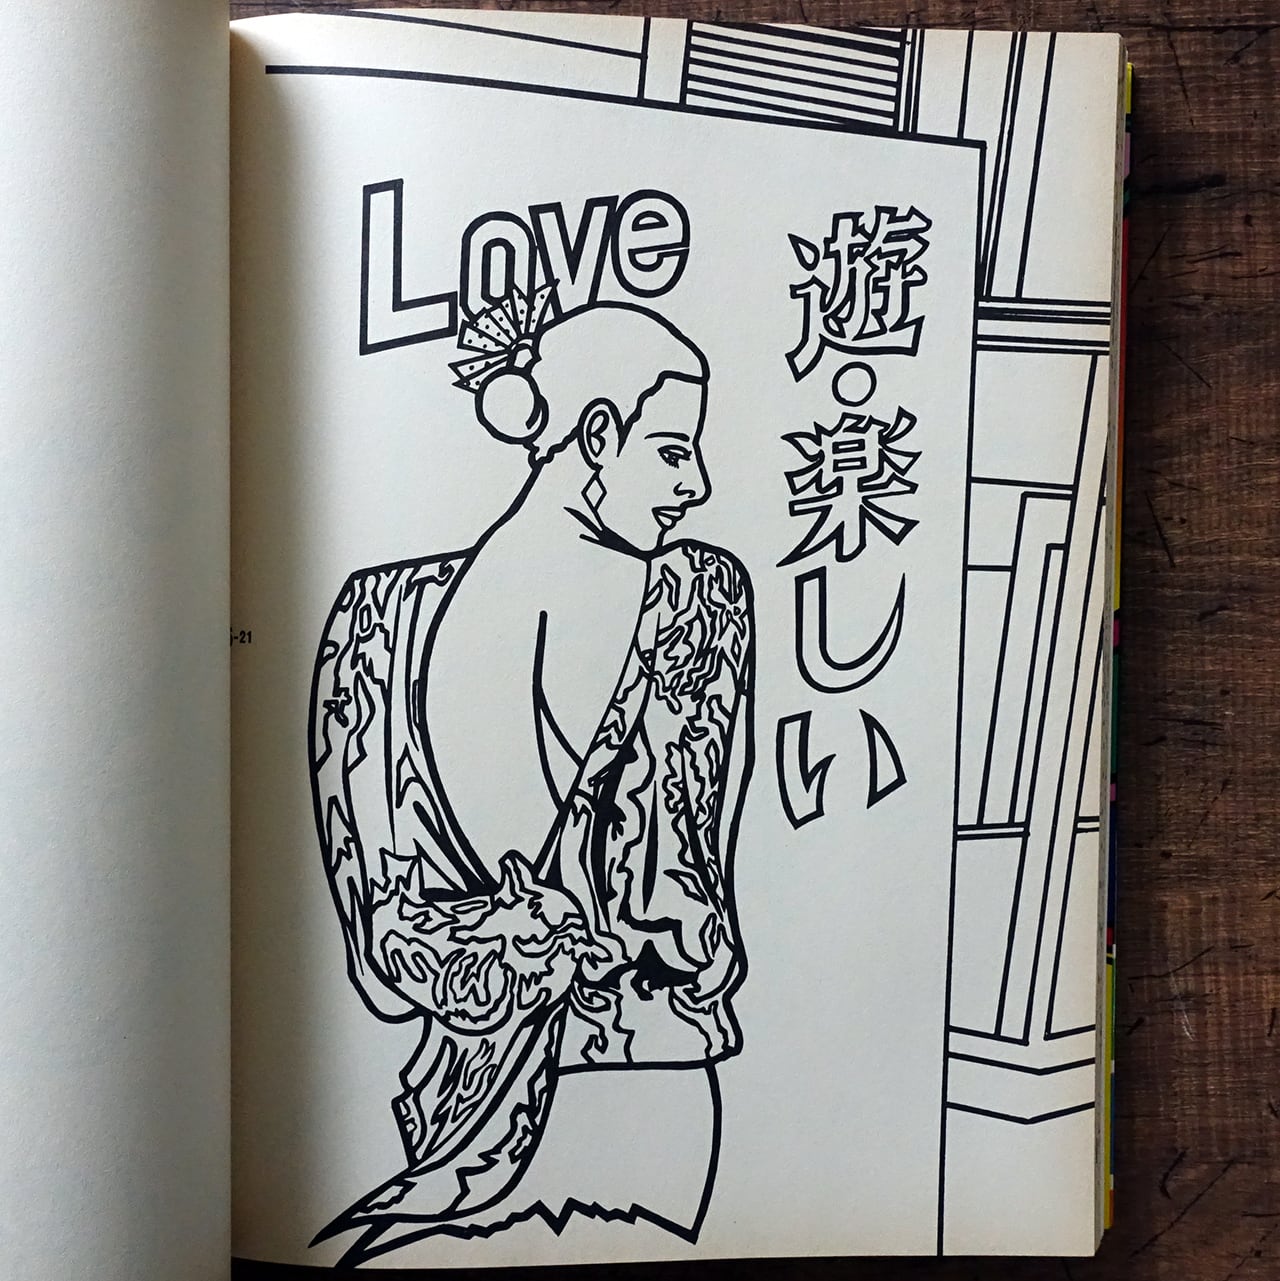 Love
遊・楽しい
-21